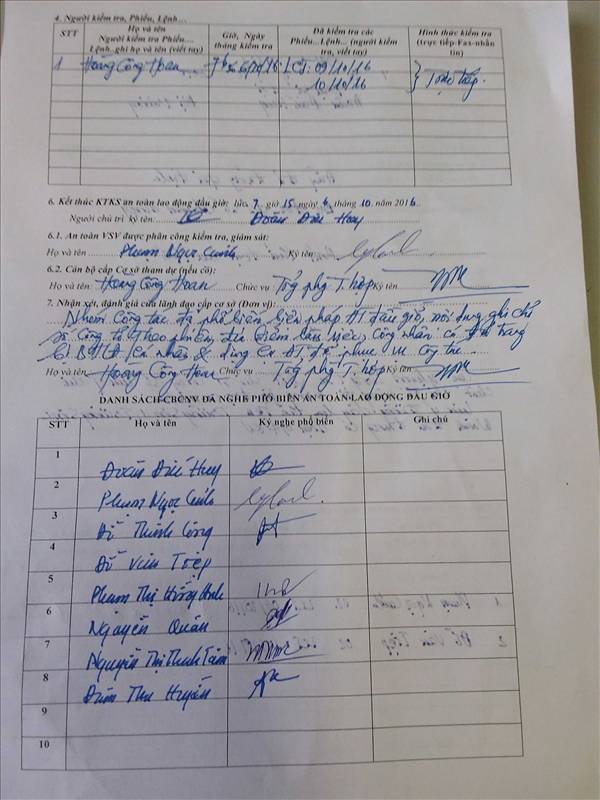 4. Người kiểm tra, Phiếu, Lệnh...
STT
Họ và tên
Người kiểm tra Phiếu...
Lệnh..ghi họ và tên (viết tay)
Giờ, Ngày
tháng kiểm tra
Đã kiểm tra các
Phiếu...Lệnh... (người kiểm
tra, viết tay)
Hình thức kiểm tra
(trực tiếp-Fax-nhắn
tin)
1 Hoàng Công Hoan LCT: 09/10/16
10/10/16
Trực tiếp.
6. Kết thúc KTKS an toàn lao động đầu giờ: lúc. 7 giờ 15 ngày 6 tháng 10 năm 2016
Người chủ trì ký tên Đoàn Đức Huy
6.1. An toàn VSV được phân công kiểm tra, giám sát:
Họ và tên Phạm Ngọc Ký tên
6.2. Cán bộ cấp Cơ sở tham dự (nếu có):
Họ và tên Hoàng Công Hoan Chức vụ Tổ phg T.hợp Ký tên
7. Nhận xét, đánh giá của lãnh đạo cấp cơ sở (Đơn vị):
Nhóm Công tác đã phổ biến biện pháp AT đầu giờ, nội dung ghi chép
sổ Công tác theo phiếu, địa điểm làm việc, Công nhân có trang
bị BHLĐ cá nhân & dụng cụ AT để phục vụ công tác
Họ và tên Hoàng Công Hoan Chức vụ Tổ phg T.hợp Ký tên
DANH SÁCH CBCNV ĐÃ NGHE PHỔ BIẾN AN TOÀN LAO ĐỘNG ĐẦU GIỜ
STT Họ và tên Ký nghe phổ biến Ghi chú
1 Đoàn Đức Huy
2 Phạm Ngọc
3 Đỗ Thành Công
4 Đỗ Văn Tiệp
5 Phạm Thị Hồng Anh
6 Nguyễn Quân
7 Nguyễn Thị Thanh Tâm
8 Đàm Thu Huyền
9
10